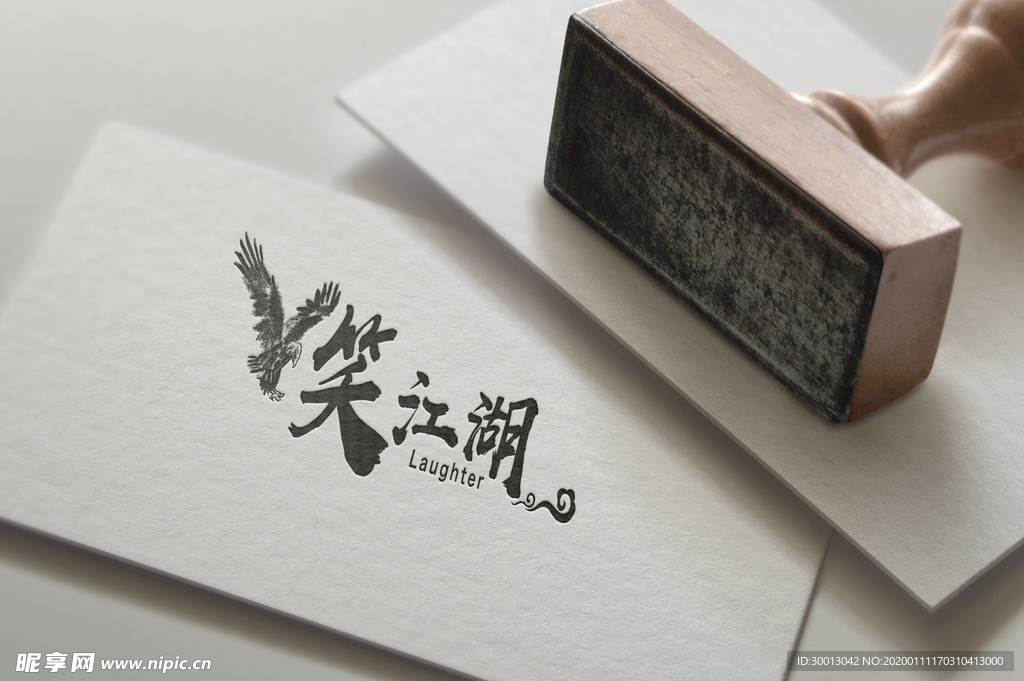 笑江湖
Laughter
昵享网 www.nipic.cn
ID:30013042 NO:20200111170310413000